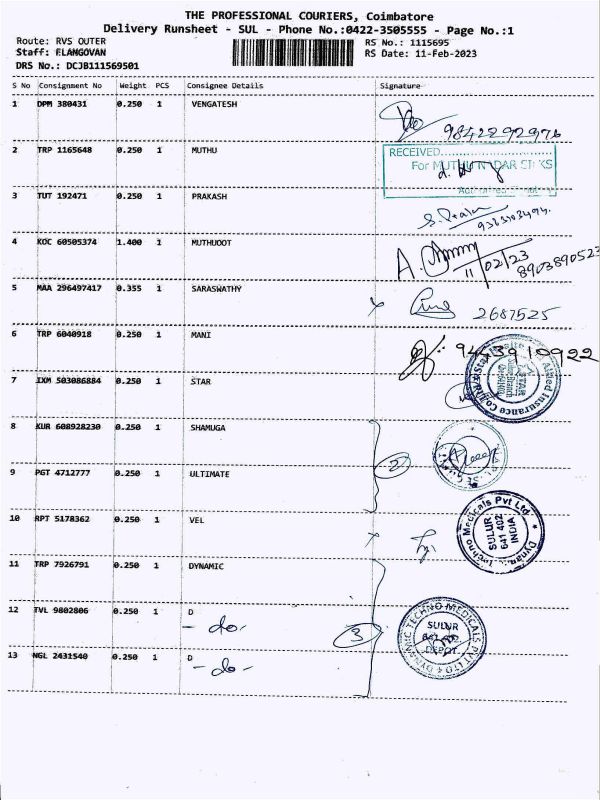 THE PROFESSIONAL COURIERS, Coimbatore
Delivery Runsheet - SUL - Phone No.:0422-3505555 - Page No.:1
Route: RVS OUTER RS No.: 1115695
Staff: ELANGOVAN RS Date: 11-Feb-2023
DRS No.: DCJB111569501
S No Consignment No Weight PCS Consignee Details Signature
1 DPM 380431 0.250 1 VENGATESH
9842292976
2 TRP 1165648 0.250 1 MUTHU
RECEIVED
For MUTHU
3 TUT 192471 0.250 1 PRAKASH
4 KOC 60505374 1.400 1 MUTHUOOT
11/02/23
8903890523
5 MAA 296497417 0.355 1 SARASWATHY
2687525
6 TRP 6040918 0.250 1 MANI
7 IXM 503086884 0.250 1 STAR
Allied Insurance Co
8 KUR 608928230 0.250 1 SHAMUGA
2
9 PGT 4712777 0.250 1 ULTIMATE
10 RPT 5178362 0.250 1 VEL
Techno Medicals Pvt Ltd
SULUR
641 402
INDIA
11 TRP 7926791 0.250 1 DYNAMIC
12 TVL 9802806 0.250 1 D
- do -
3
DYNAMIC TECHNO MEDICALS PVT LTD
SULUR
DEPOT
13 NGL 2431540 0.250 1 D
- do -